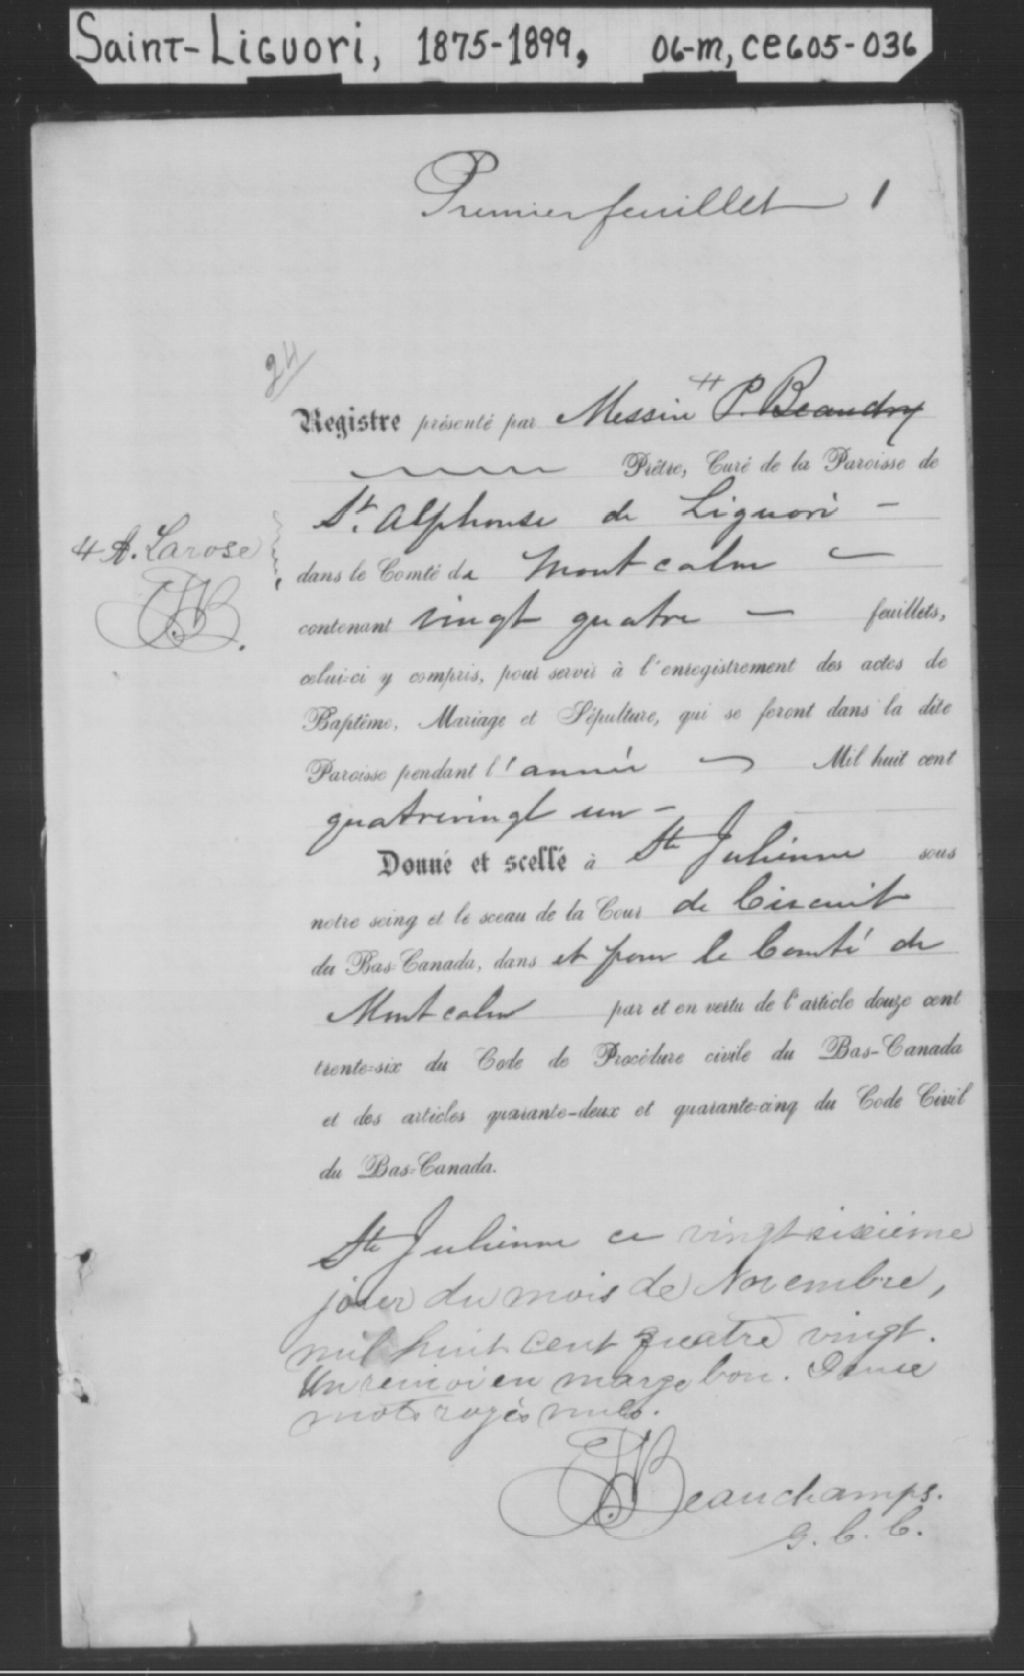 Saint-Liguori, 1875-1899, 06-m, ce605-036
Premier feuillet 1
24
Registre présenté par Messire # P. Beaudry
Prêtre, Curé de la Paroisse de
St. Alphonse de Liguori -
# A. Larose
J.B.
dans le Comté de Montcalm -
contenant vingt quatre - feuillets,
celui-ci y compris, pour servir à l'enregistrement des actes de
Baptême, Mariage et Sépulture, qui se feront dans la dite
Paroisse pendant l'année - Mil huit cent
quatrevingt un -
Donné et scellé à Ste Julienne sous
notre seing et le sceau de la Cour de Circuit
du Bas-Canada, dans et pour le Comté de
Montcalm par et en vertu de l'article douze cent
trente-six du Code de Procédure civile du Bas-Canada
et des articles quarante-deux et quarante-cinq du Code Civil
du Bas-Canada.
Ste Julienne ce vingt sixième
jour du mois de Novembre,
mil huit cent quatre vingt.
Un renvoi en marge bon.
mots rayés nuls.
Beauchamps.
G. C. C.